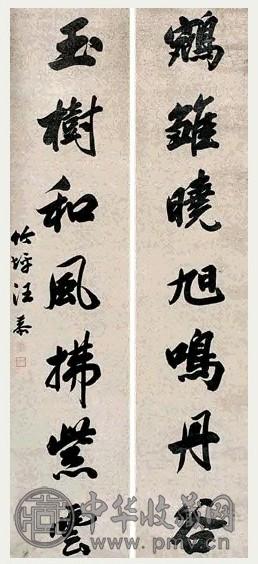 鵷雛曉旭鳴丹谷
玉樹和風拂紫雲
竹坪汪恭
中华收藏网